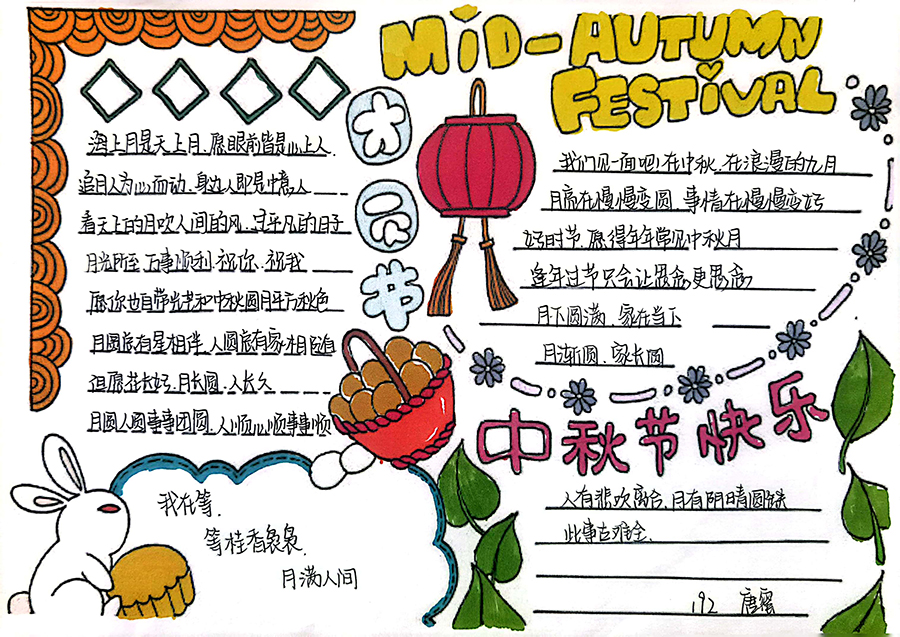 MiD-AUTUMN
FESTiVAL
海上月是天上月.愿眼前皆是心上人.
追月人为心而动.身边人即是中意人
看天上的月吹人间的风.过平凡的日子
月光所至 万事顺利.祝你.祝我
愿你也自带光芒和中秋圆月平分秋色
月圆应有星相伴.人圆应有家相随
但愿花长好.月长圆.人长久
月圆人圆事事团圆.人顺心顺事事顺
大
员
节
我们见一面吧!在中秋.在浪漫的九月
月亮在慢慢变圆.事情在慢慢变好
好时节.愿得年年常见中秋月
逢年过节只会让思念更思念
月下圆满.家在当下
月渐圆.家长圆
中秋节快乐
人有悲欢离合,月有阴晴圆缺
此事古难全.
192 唐蜜
我在等.
等桂香袅袅.
月满人间